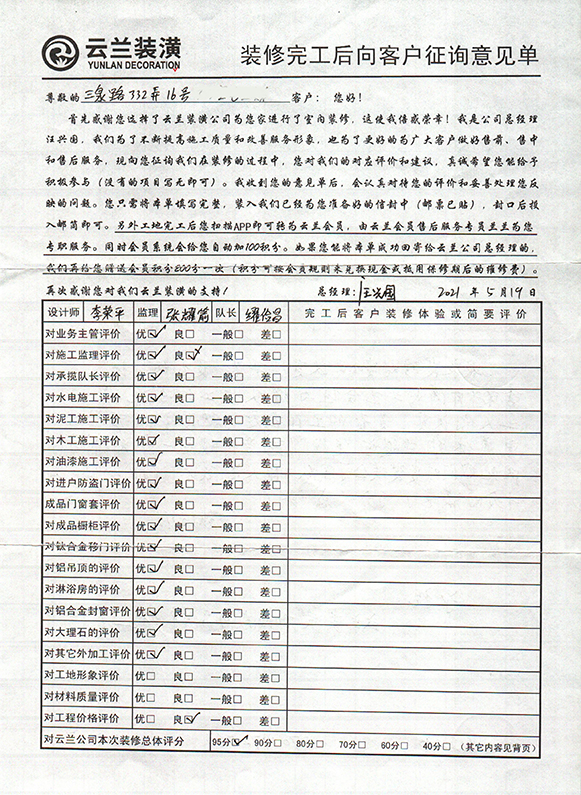 云兰装潢
YUNLAN DECORATION
装修完工后向客户征询意见单
尊敬的 三泉路332弄16号 客户：您好！
首先感谢您选择了云兰装潢公司为您家进行了室内装修，这使我倍感荣幸！我是公司总经理
汪兴国，我们为了不断提高施工质量和改善服务形象，也为了更好的为广大客户做好售前、售中
和售后服务，现向您征询我们在装修的过程中，您对我们的对应评价和建议，真诚希望您能给予
积极参与（没有的项目写无即可）。我收到您的意见单后，会认真对待您的评价和妥善处理您反
映的问题。您只需将本单填写完整，装入我们已经为您准备好的信封中（邮票已贴），封口后投
入邮筒即可。另外工地完工后您扫描APP即可转为云兰会员，由云兰会员售后服务专员兰兰为您
专职服务。同时会员系统会给您自动加100积分。如果您能将本单成功回寄给云兰公司总经理的，
我们再给您赠送会员积分200分一次（积分可按会员规则来兑换现金或抵用保修期后的维修费）。
再次感谢您对我们云兰装潢的支持！ 总经理：汪兴国 2021 年 5月19日
设计师 李荣平 监理 张耀前 队长 完工后客户装修体验或简要评价
对业务主管评价 优☑ 良□ 一般□ 差□
对施工监理评价 优☑ 良☑ 一般□ 差□
对承揽队长评价 优☑ 良□ 一般□ 差□
对水电施工评价 优☑ 良□ 一般□ 差□
对泥工施工评价 优☑ 良□ 一般□ 差□
对木工施工评价 优☑ 良□ 一般□ 差□
对油漆施工评价 优☑ 良□ 一般□ 差□
对进户防盗门评价 优☑ 良□ 一般□ 差□
成品门窗套评价 优☑ 良□ 一般□ 差□
对成品橱柜评价 优☑ 良□ 一般□ 差□
对钛合金移门评价 优☑ 良□ 一般□ 差□
对铝吊顶的评价 优☑ 良□ 一般□ 差□
对淋浴房的评价 优☑ 良□ 一般□ 差□
对铝合金封窗评价 优☑ 良□ 一般□ 差□
对大理石的评价 优☑ 良□ 一般□ 差□
对其它外加工评价 优☑ 良□ 一般□ 差□
对工地形象评价 优□ 良□ 一般□ 差□
对材料质量评价 优□ 良□ 一般□ 差□
对工程价格评价 优□ 良☑ 一般□ 差□
对云兰公司本次装修总体评分 95分☑ 90分□ 80分□ 70分□ 60分□ 40分□ （其它内容见背页）